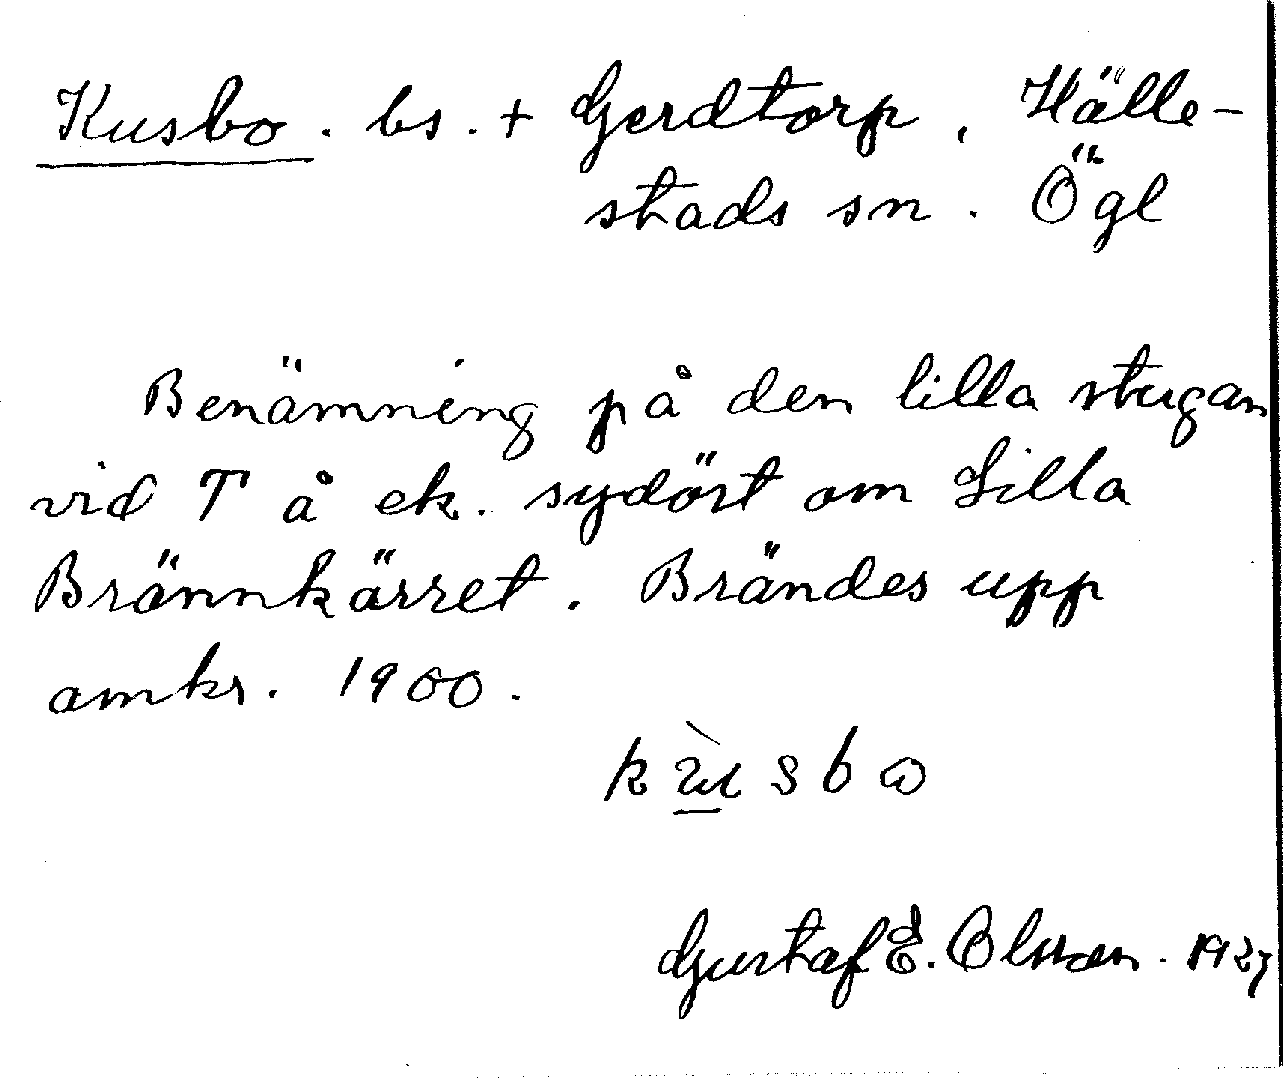 Kusbo. bs. + Gerdtorp, Hälle-
stads sn. Ögl
Benämning på den lilla stugan
vid T å ek. sydöst om Lilla
Brännkärret. Brändes upp
omkr. 1900.
Gustaf E. Olsson. 1927